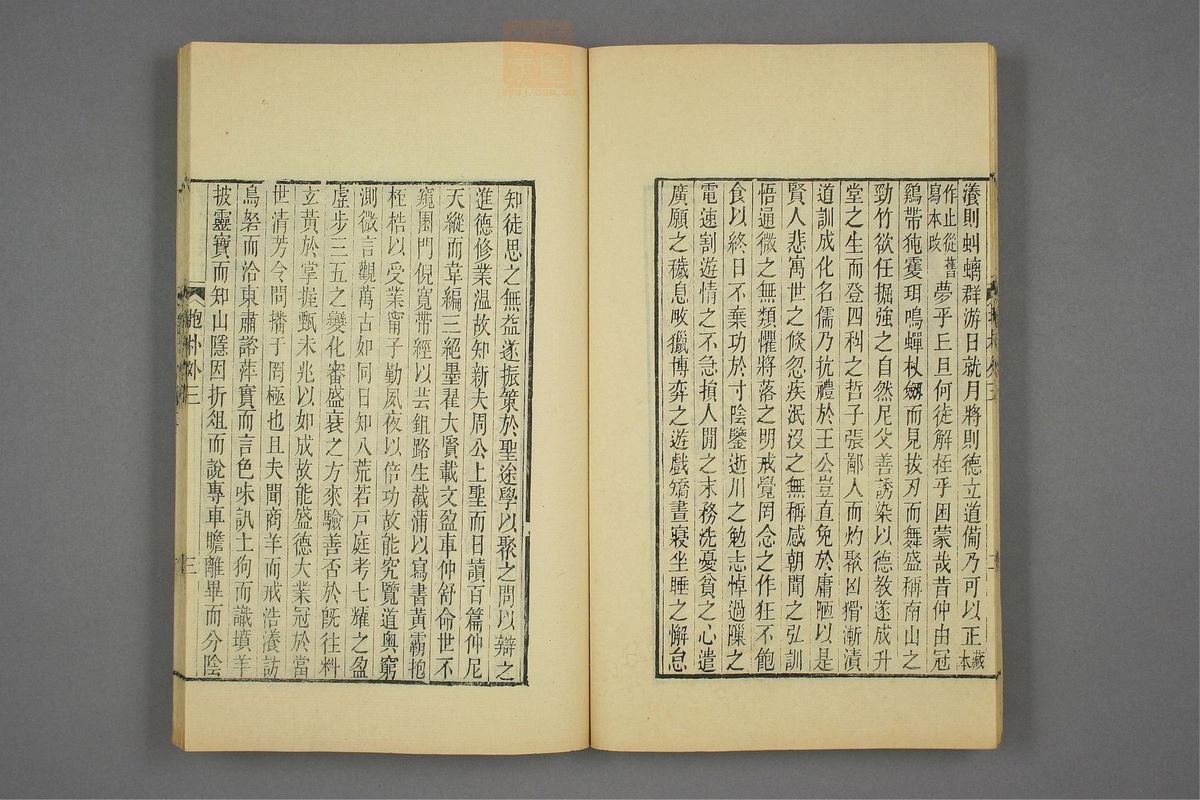 瀁則蚪螭群游日就月將則德立道備乃可以正藏本
作止從舊寫本攺夢乎𠀉旦何徒解桎乎困蒙哉昔仲由冠
鷄帶㹠霻珥鳴蟬杖劒而見拔刃而舞盛稱南山之
勁竹欲任掘強之自然尼父善誘染以德教遂成升
堂之生而登四科之哲子張鄙人而灼聚凶猾漸漬
道訓成化名儒乃抗禮於王公豈直免於庸陋以是
賢人悲寓世之倏忽疾泯沒之無稱感朝聞之弘訓
悟通微之無類懼將落之明戒覺罔念之作狂不飽
食以終日不棄功於寸陰鑒逝川之勉志悼過隟之
電速割遊情之不急損人閒之末務洗憂貧之心遣
廣願之穢息畋獵博弈之遊戲矯晝寢坐睡之懈怠
知徒思之無益遂振策於聖途學以聚之問以辯之
進德修業温故知新夫周公上聖而日讀百篇仲尼
天縱而韋編三絕墨翟大賢載文盈車仲舒命世不
窺園門倪寛帶經以芸鉏路生截蒲以寫書黃霸抱
桎梏以受業甯子勤夙夜以倍功故能究覽道奧窮
測微言觀萬古如同日知八荒若戸庭考七耀之盈
虛步三五之變化審盛衰之方來驗善否於旣往料
玄黃於掌握甄未兆以如成故能盛德大業冠於當
世清芳令問播于罔極也且夫聞商羊而戒浩瀁訪
鳥砮而洽東肅諮萍實而言色味訊土狗而識墳羊
披靈寶而知山隱因折俎而說專車瞻離畢而分陰
抱朴外三
三